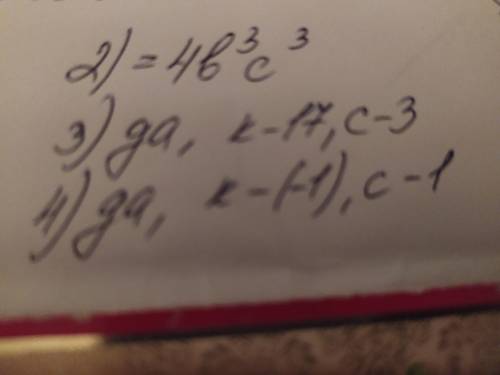 2) = 4в³с³
3) да, к-17, с-3
4) да, к-(-1), с-1